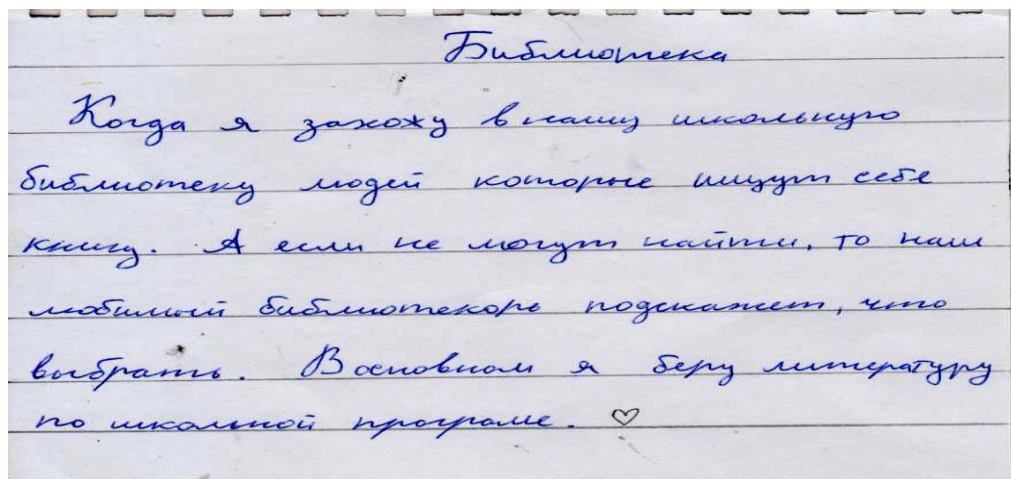 Библиотека
Когда я захожу в нашу школьную
библиотеку людей которые ищут себе
книгу. А если не могут найти, то наш
любимый библиотекорь подскажет, что
выбрать. В основном я беру литературу
по школьной програме. ♡